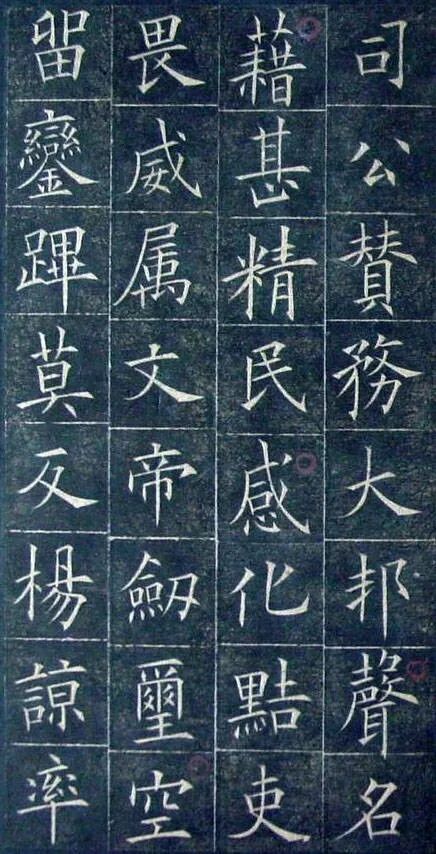 司公贊務大邦聲名
藉甚精民感化黠吏
畏威属文帝劒璽空
留鑾蹕莫反楊諒率